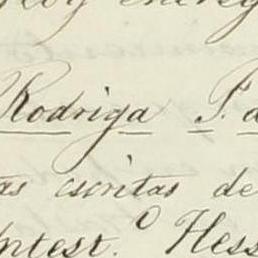 Rodriga P. a
as escritas de
ntest.º Hess